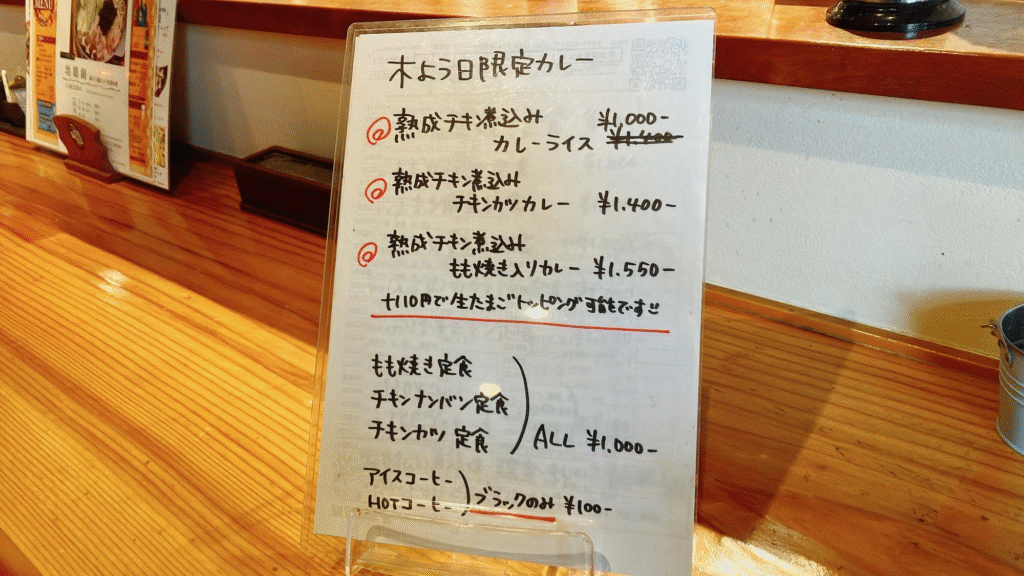 MENU
木よう日限定カレー
@熟成チキン煮込み ¥1,000-
カレーライス ¥1.400-
@熟成チキン煮込み
チキンカツカレー ¥1.400-
@熟成チキン煮込み
もも焼き入りカレー ¥1.550-
+110円で生たまごトッピング可能です
もも焼き定食
チキンナンバン定食
チキンカツ定食 ALL ¥1,000-
アイスコーヒー
HOTコーヒー ブラックのみ ¥100-